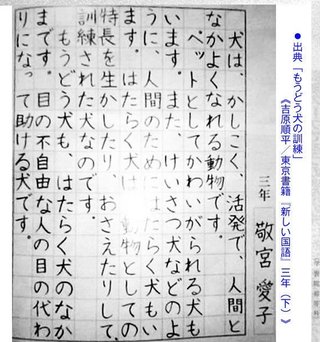 ●出典「もうどう犬の訓練」
《吉原順平／東京書籍『新しい国語』三年（下）》
三年 敬宮 愛子
犬は、かしこく、活発で、人間と
なかよくなれる動物です。
ペットとしてかわいがられる犬も
います。また、けいさつ犬などのよ
うに、人間のためにはたらく犬もい
ます。はたらく犬は、動物としての
特長を生かしたり、おさえたりして、
訓練された犬なのです。
もうどう犬も、はたらく犬のなか
まです。目の不自由な人の目の代わ
りになって助ける犬です。